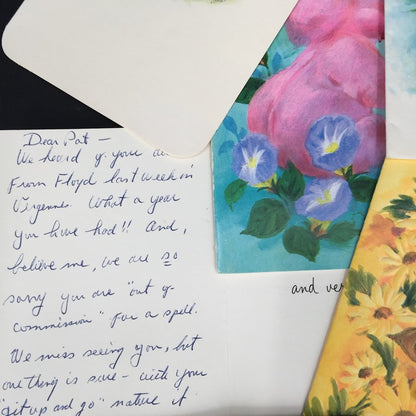 Dear Pat —
We heard of your
From Floyd last week in
Vergennes. What a year
you have had!! And,
believe me, we are so
sorry you are "out of
commission" for a spell.
We miss seeing you, but
one thing is sure — with your
"sit up and go" nature it
and ver